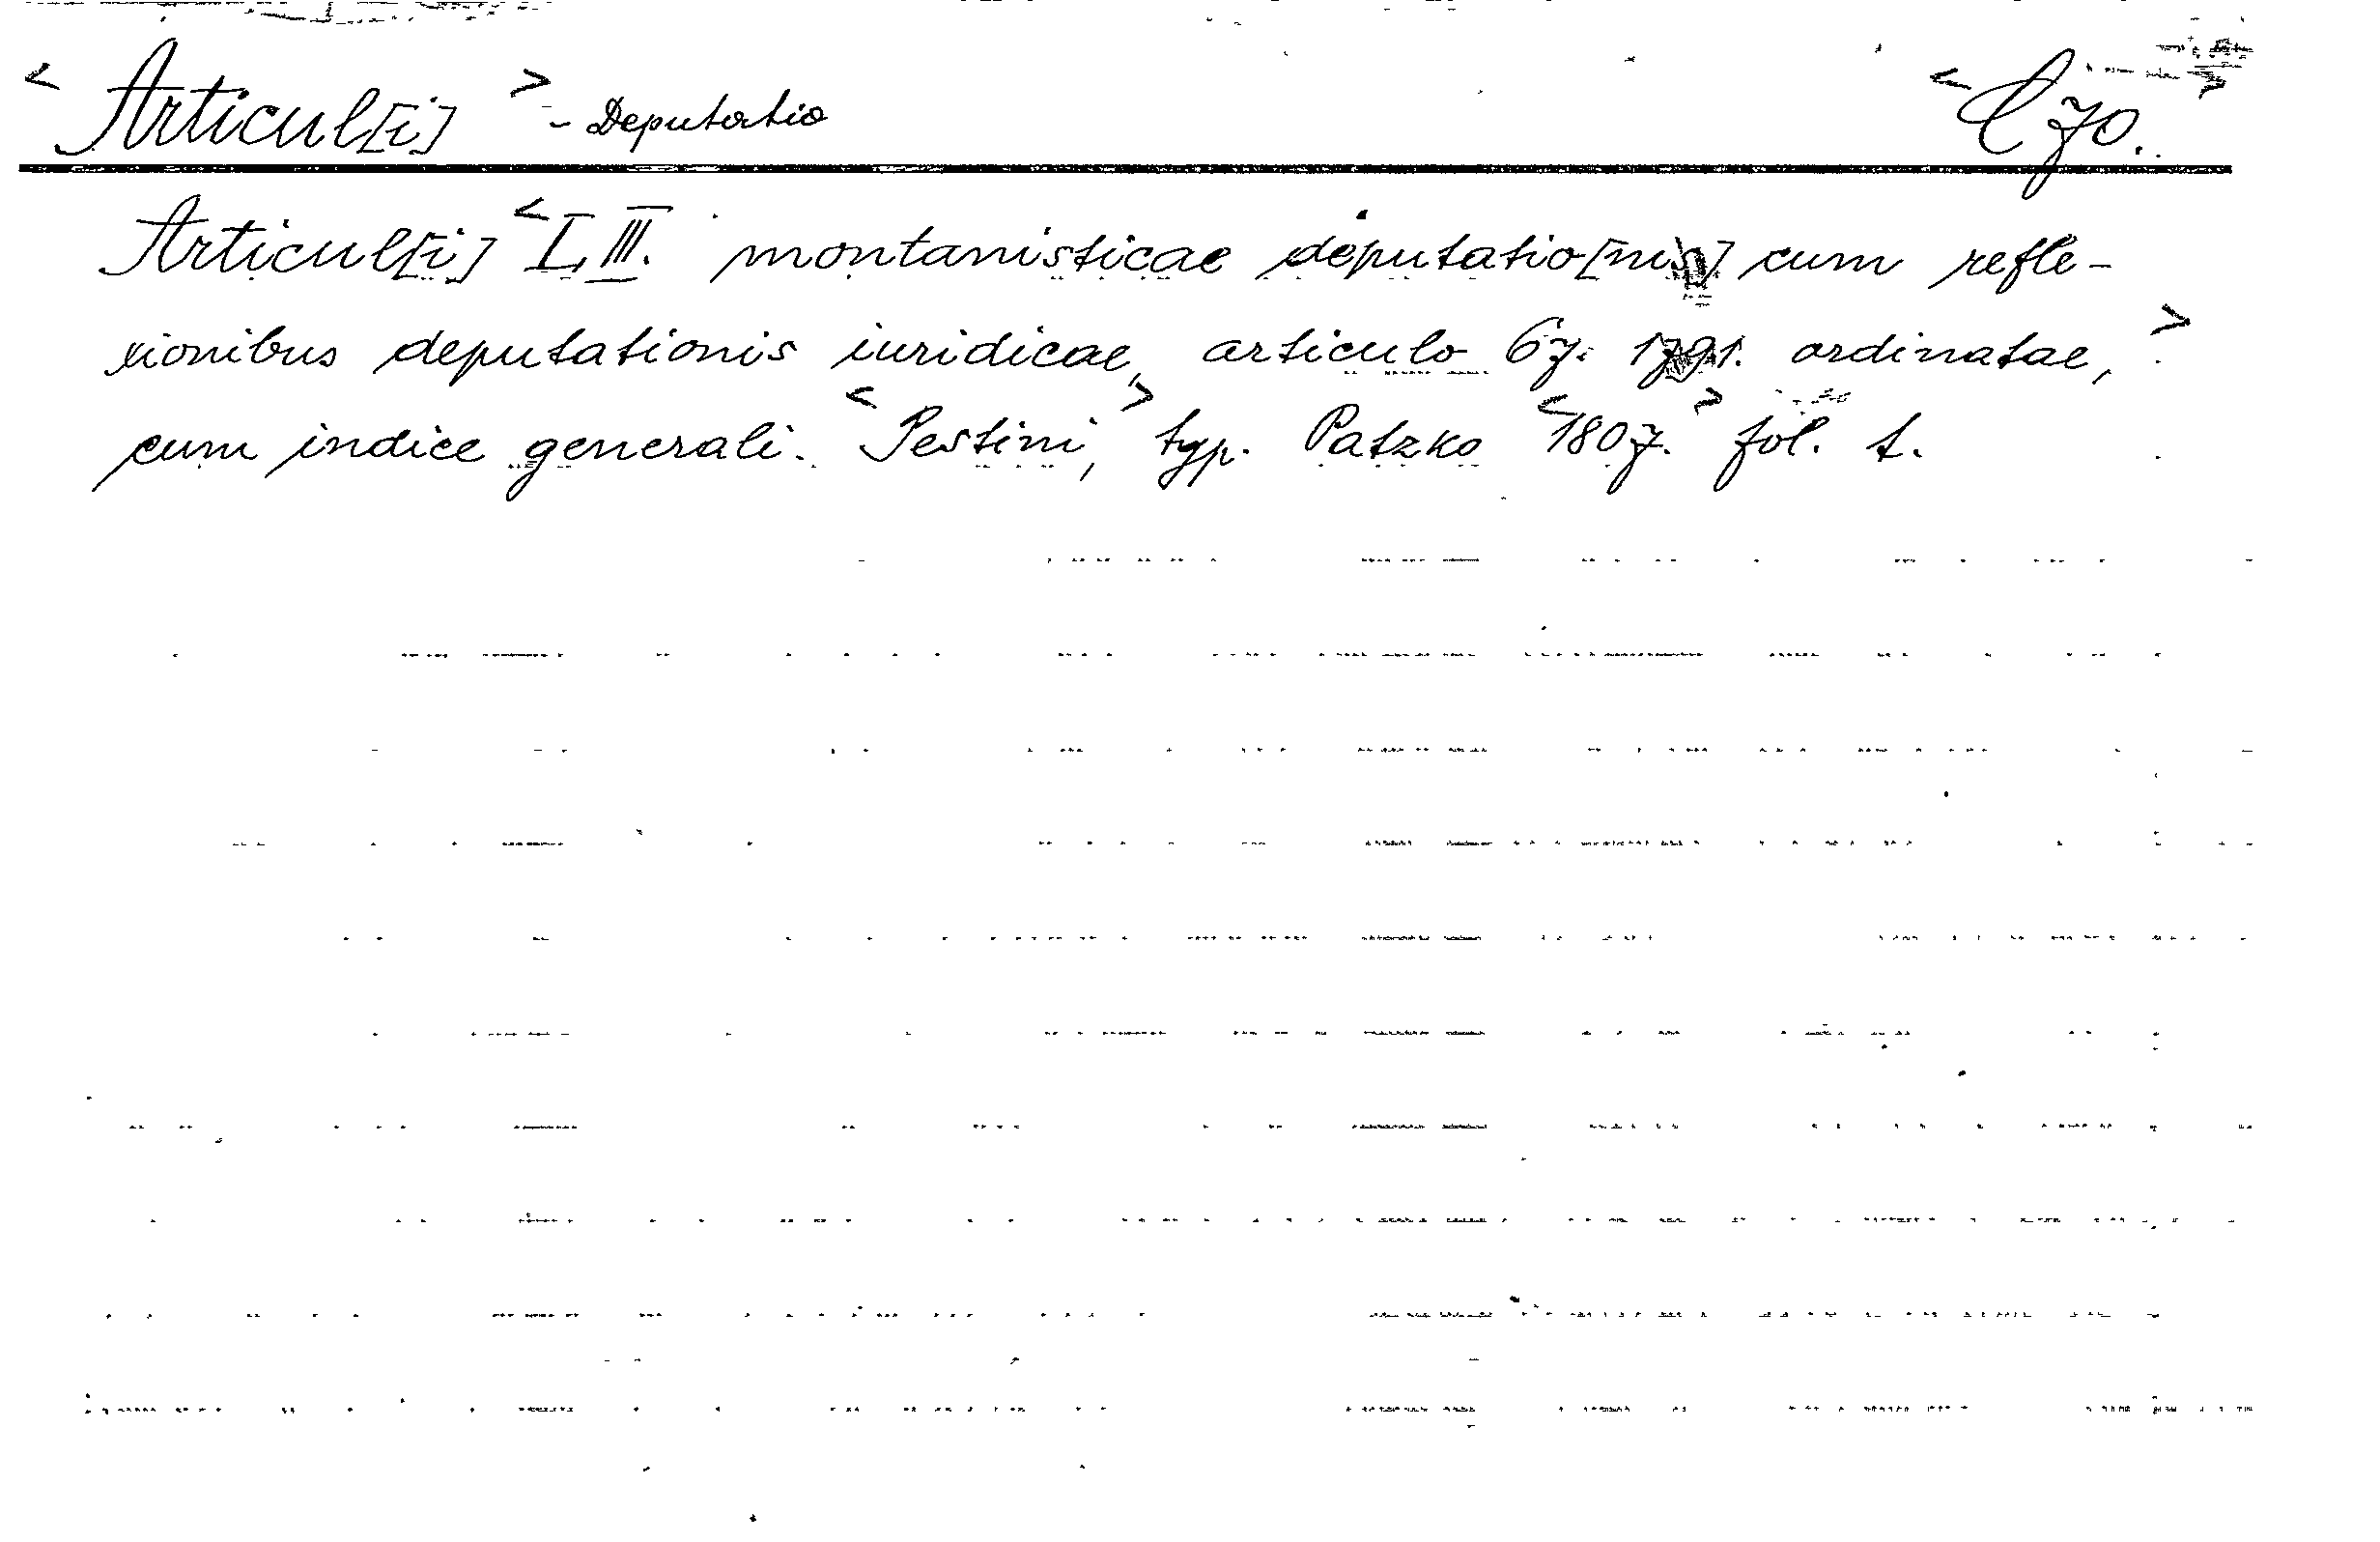 < Articul[i] > - Deputatio < C 70. >
Articul[i] < I, III. montanisticae deputatio[nis] cum refle-
xionibus deputationis iuridicae, articulo 67. 1791. ordinatae, >
cum indice generali. < Pestini, > typ. Patzko < 1807. > fol. t.